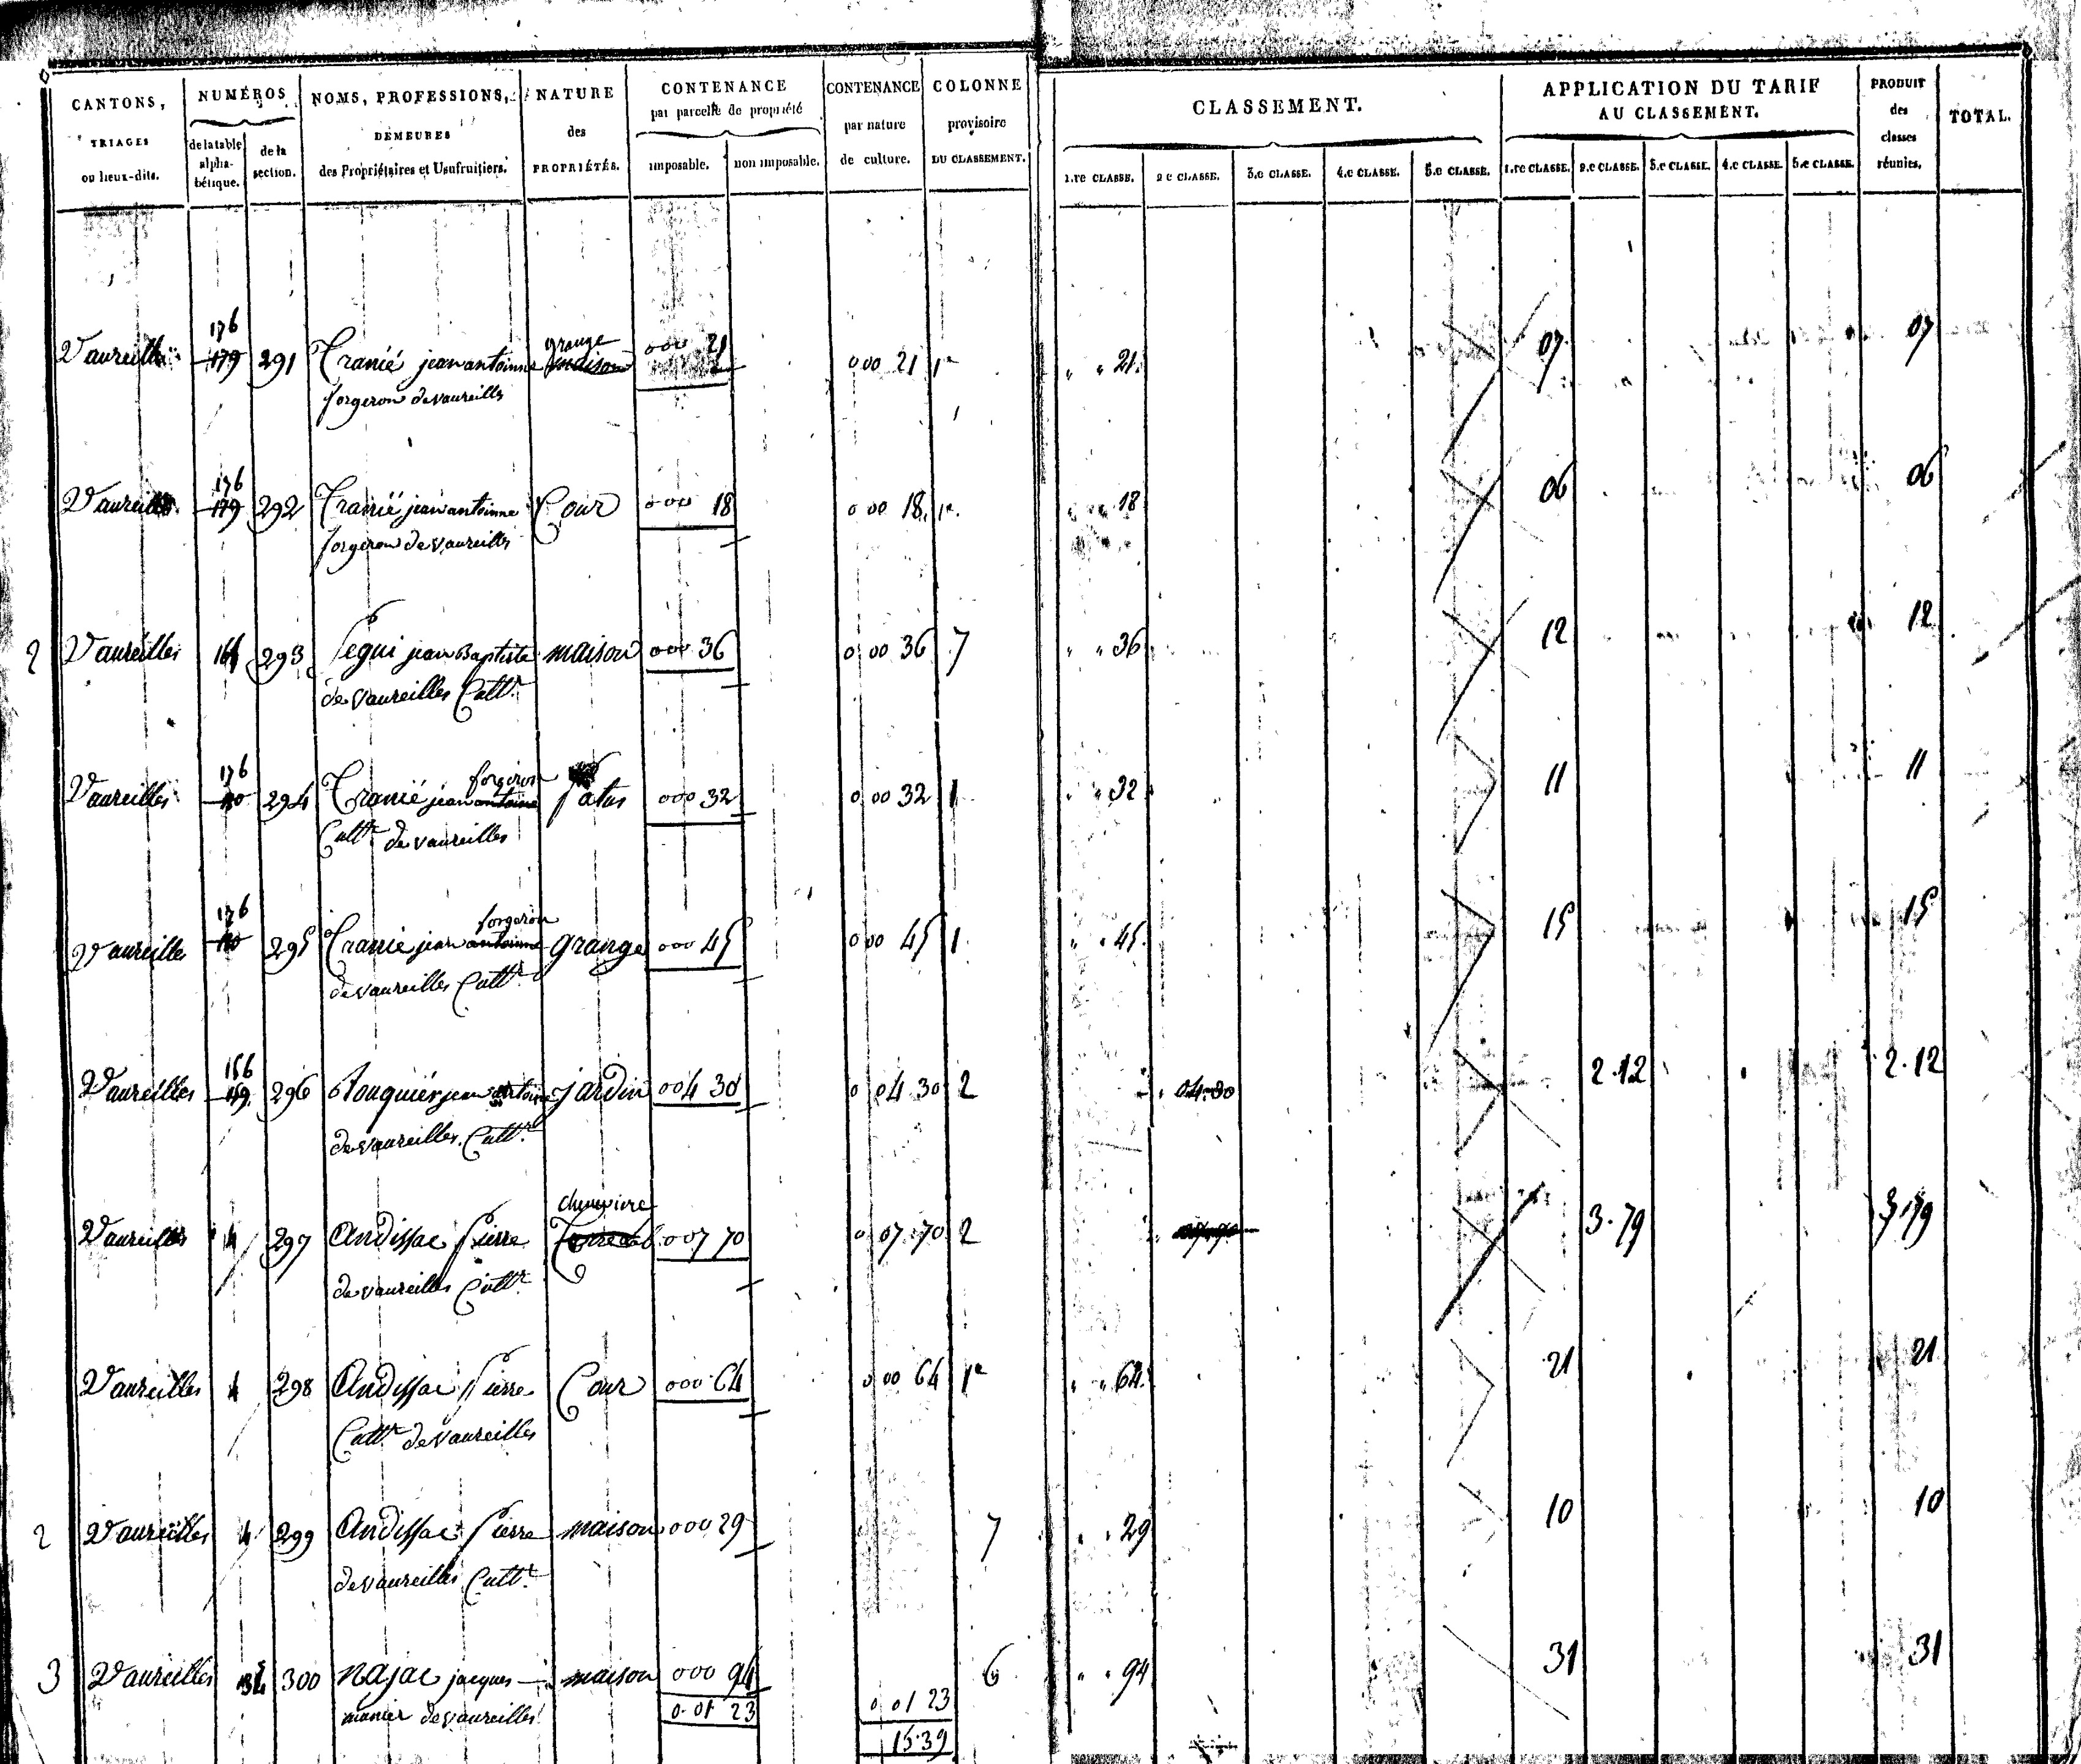 CANTONS, TRIAGES ou lieux-dits. NUMÉROS de la table alphabétique. de la section. NOMS, PROFESSIONS, DEMEURES des Propriétaires et Usufruitiers. NATURE des PROPRIÉTÉS. CONTENANCE par parcelle de propriété imposable. non imposable. CONTENANCE par nature de culture. COLONNE provisoire DU CLASSEMENT. CLASSEMENT. 1.re CLASSE. 2e CLASSE. 3.e CLASSE. 4.e CLASSE. 5.e CLASSE. APPLICATION DU TARIF AU CLASSEMENT. 1.re CLASSE. 2.e CLASSE. 3.e CLASSE. 4.e CLASSE. 5.e CLASSE. PRODUIT des classes réunies. TOTAL.
176 grange
Vaureilles 179 291 Tranié jean antoinne maison 000 21 0 00 21 1re " " 21 07 07
forgeron de vaureilles
176
Vaureilles 179 292 Tranié jean antoinne Cour 000 18 0 00 18 1re " " 18 06 06
forgeron de vaureilles
2 Vaureilles 293 Segui jean Baptiste maison 000 36 0 00 36 7 " " 36 12 12
de vaureilles Cultr
176 forgeron
Vaureilles 294 Tranié jean antoine patus 000 32 0 00 32 1 " " 32 11 11
Cultr de vaureilles
176 forgeron
Vaureilles 295 Tranié jean antoinne grange 000 45 0 00 45 1 " " 45 15 15
de vaureilles Cultr
156
Vaureilles 296 jean antoine jardin 004 30 0 04 30 2 " 04.30 2.12 2.12
de vaureilles Cultr
cheneviere
Vaureilles 4 297 Andissac Pierre 007 70 0 07 70 2 3.79 3.79
de vaureilles Cultr
Vaureilles 4 298 Andissac Pierre Cour 000 64 0 00 64 1re " " 64 21 21
Cultr de vaureilles
2 Vaureilles 4 299 Andissac Pierre maison 000 29 7 " " 29 10 10
de vaureilles Cultr
3 Vaureilles 300 Najac jacques maison 000 94 6 " " 94 31 31
de vaureilles 0.01 23 0 01 23
15.39